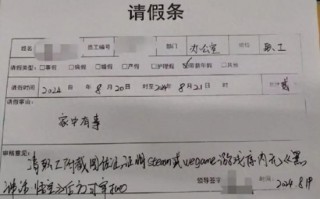 请假条
姓名 员工编号 部门 办公室 职位 职工
请假类型: □事假 □病假 □婚假 □产假 □护理假 ☑年休假 □其他
请假时间 2024年 8月20日 至 2024年 8月21日
请假事由:
家中有事
审核意见:
请职工附截图佐证,证明steam或wegame游戏库内无《黑
神话:悟空》后方可审批
领导签字 2024.8.19